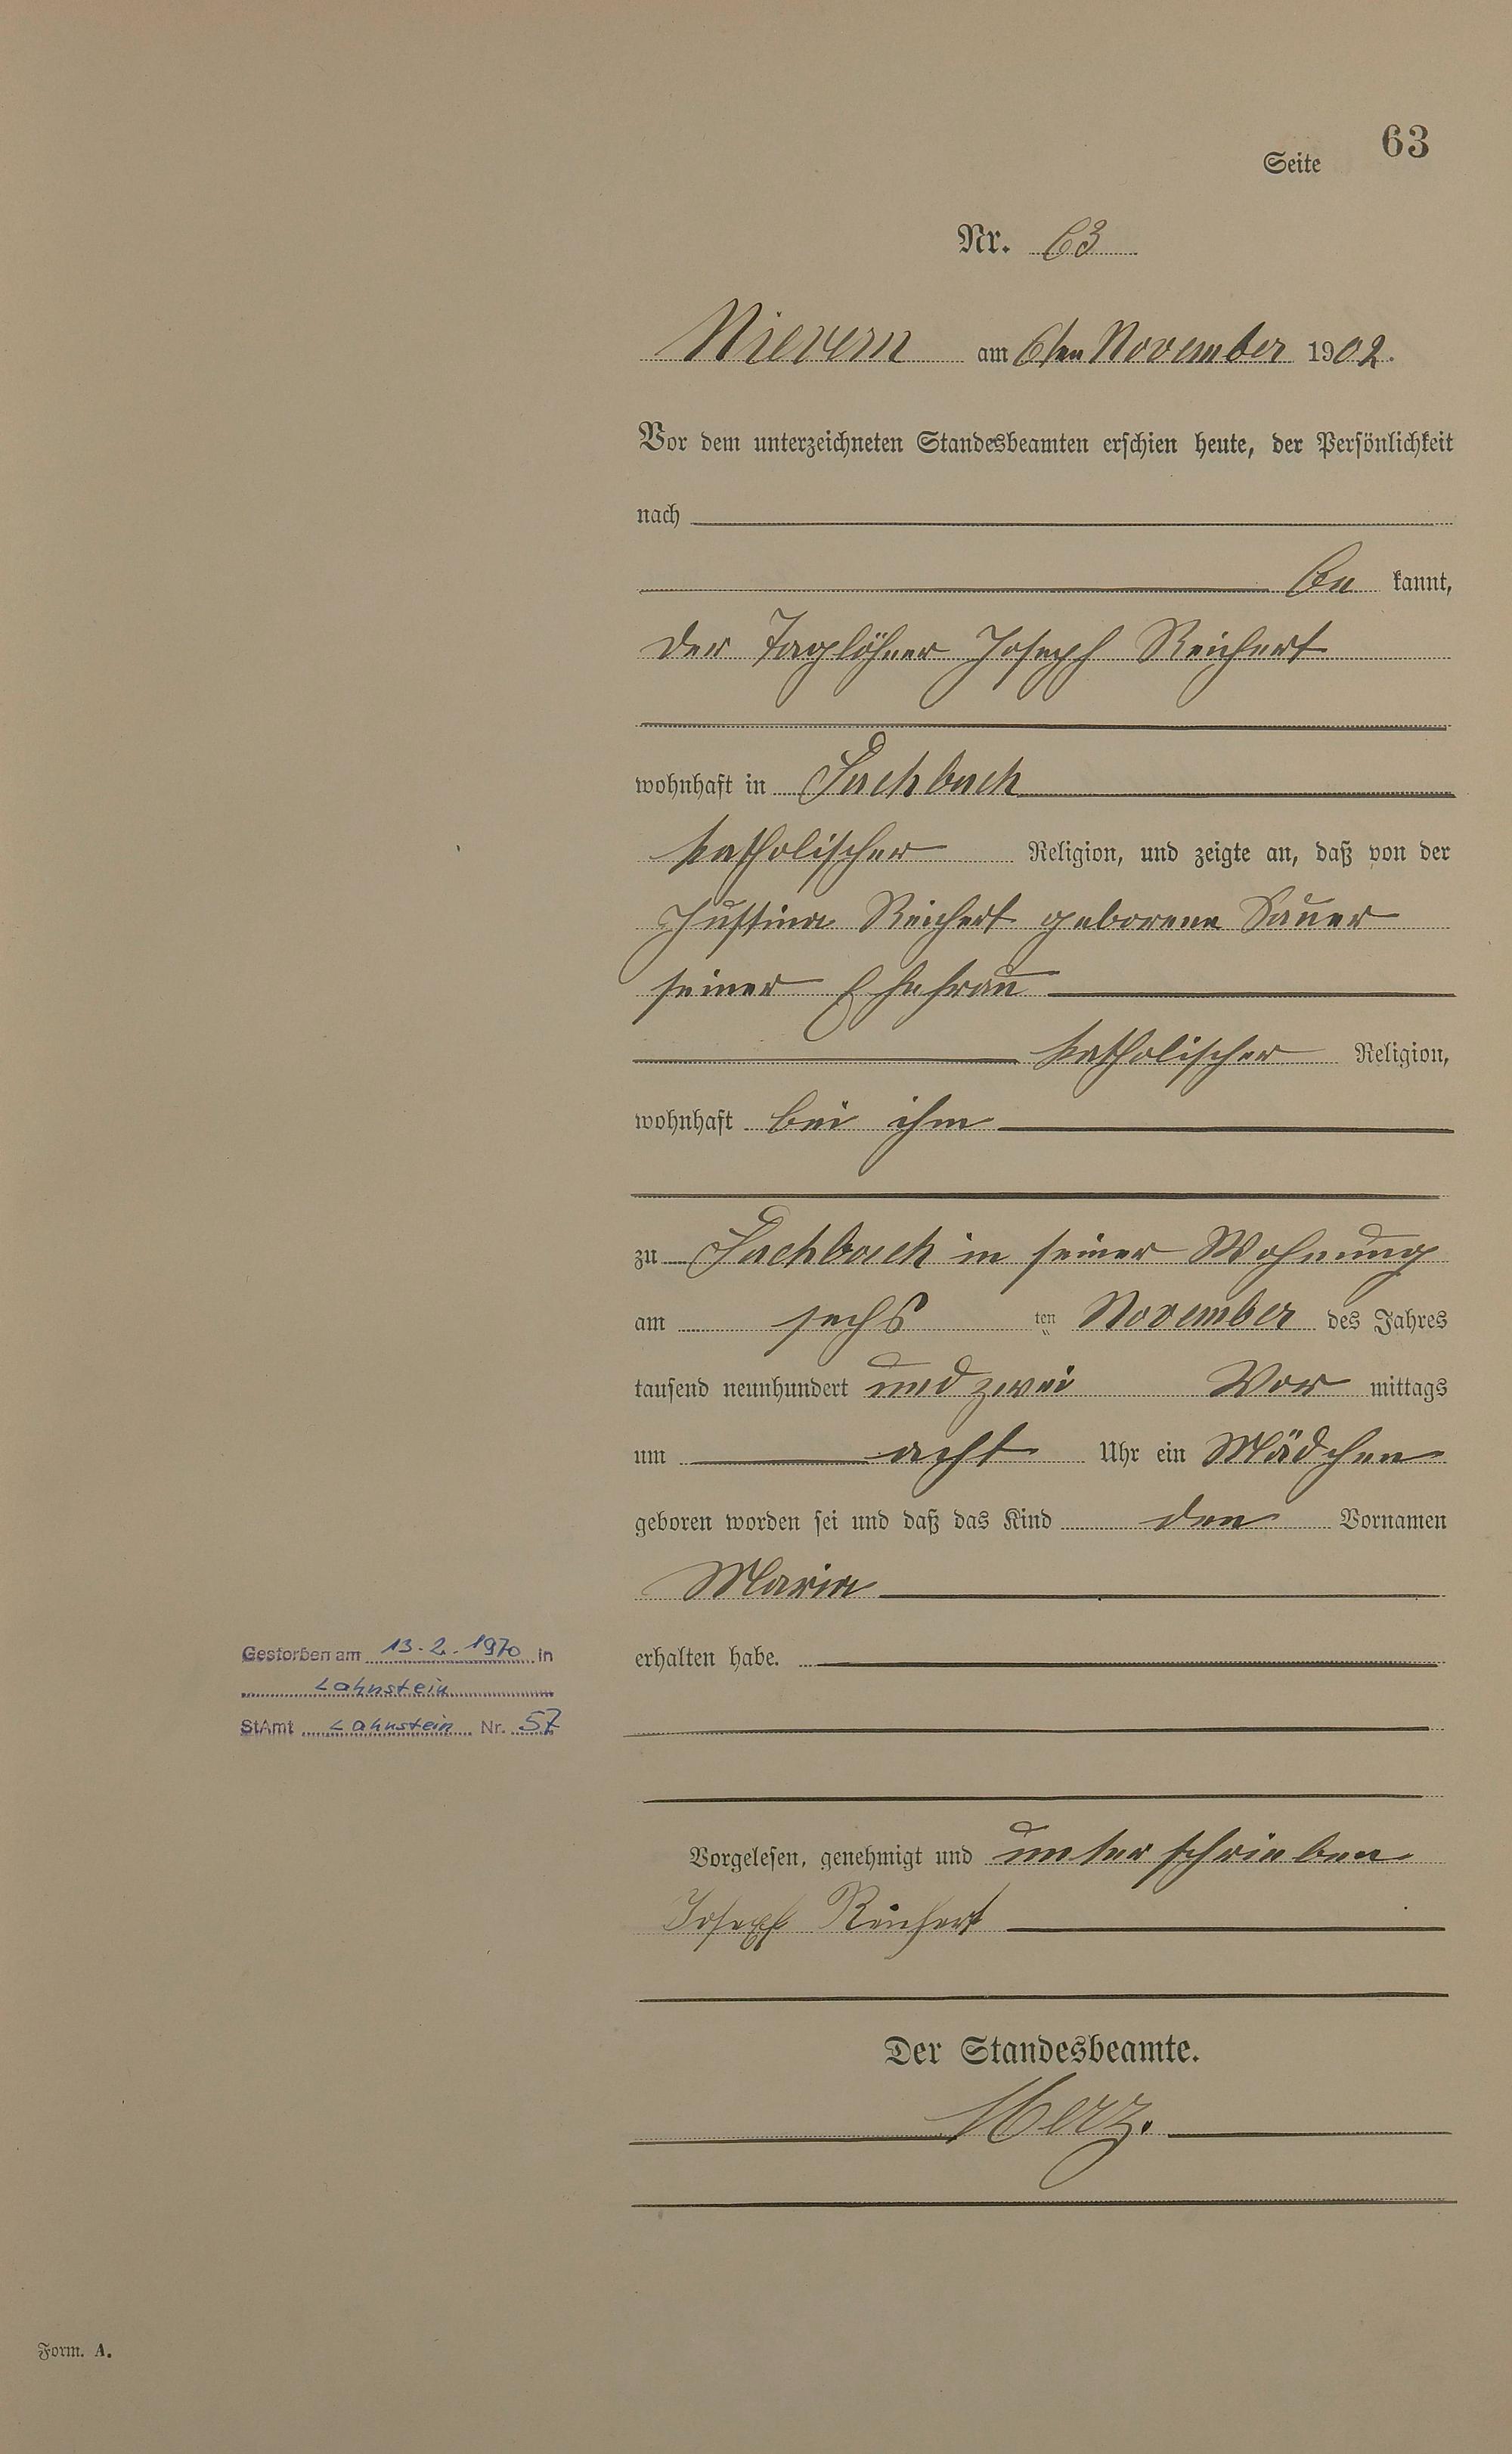 Seite 63
Nr. 63
Nievern am 6ten November 1902.
Vor dem unterzeichneten Standesbeamten erschien heute, der Persönlichkeit
nach
be kannt,
der Taglöhner Joseph Reichert
wohnhaft in Fachbach
katholischer Religion, und zeigte an, daß von der
Justina Reichert geborene Sauer
seiner Ehefrau
katholischer Religion,
wohnhaft bei ihm
zu Fachbach in seiner Wohnung
am sechs ten November des Jahres
tausend neunhundert und zwei Vor mittags
um acht Uhr ein Mädchen
geboren worden sei und daß das Kind den Vornamen
Maria
erhalten habe.
Gestorben am 13.2.1970 in
Lahnstein
StAmt Lahnstein Nr. 57
Vorgelesen, genehmigt und unterschrieben
Joseph Reichert
Der Standesbeamte.
Merz.
Form. A.